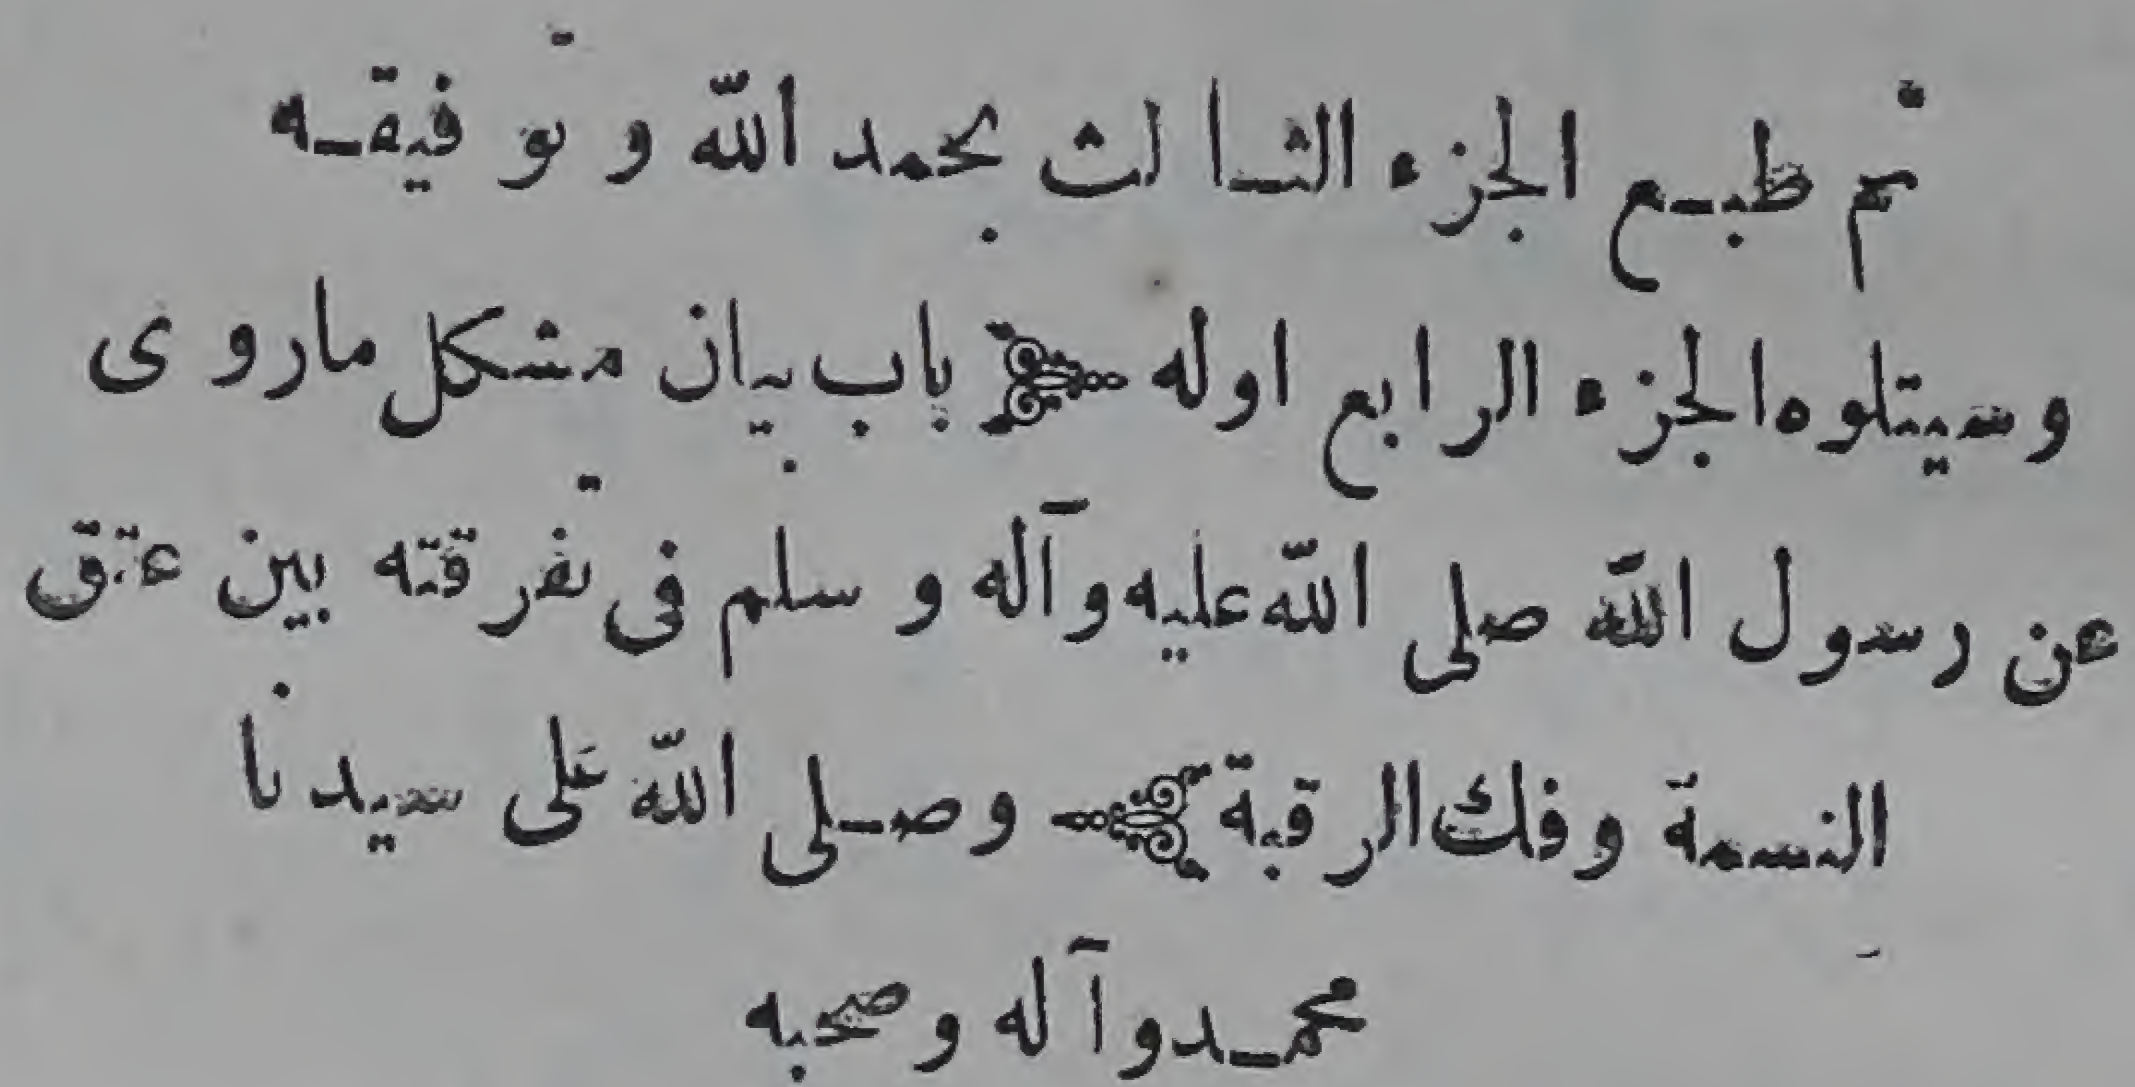 تم طبع الجزء الثالث بحمد الله وتوفيقه
وسيتلوه الجزء الرابع اوله باب بيان مشكل ماروى
عن رسول الله صلى الله عليه وآله وسلم فى تفرقته بين عتق
النسمة وفك الرقبة وصلى الله على سيدنا
محمد وآله وصحبه